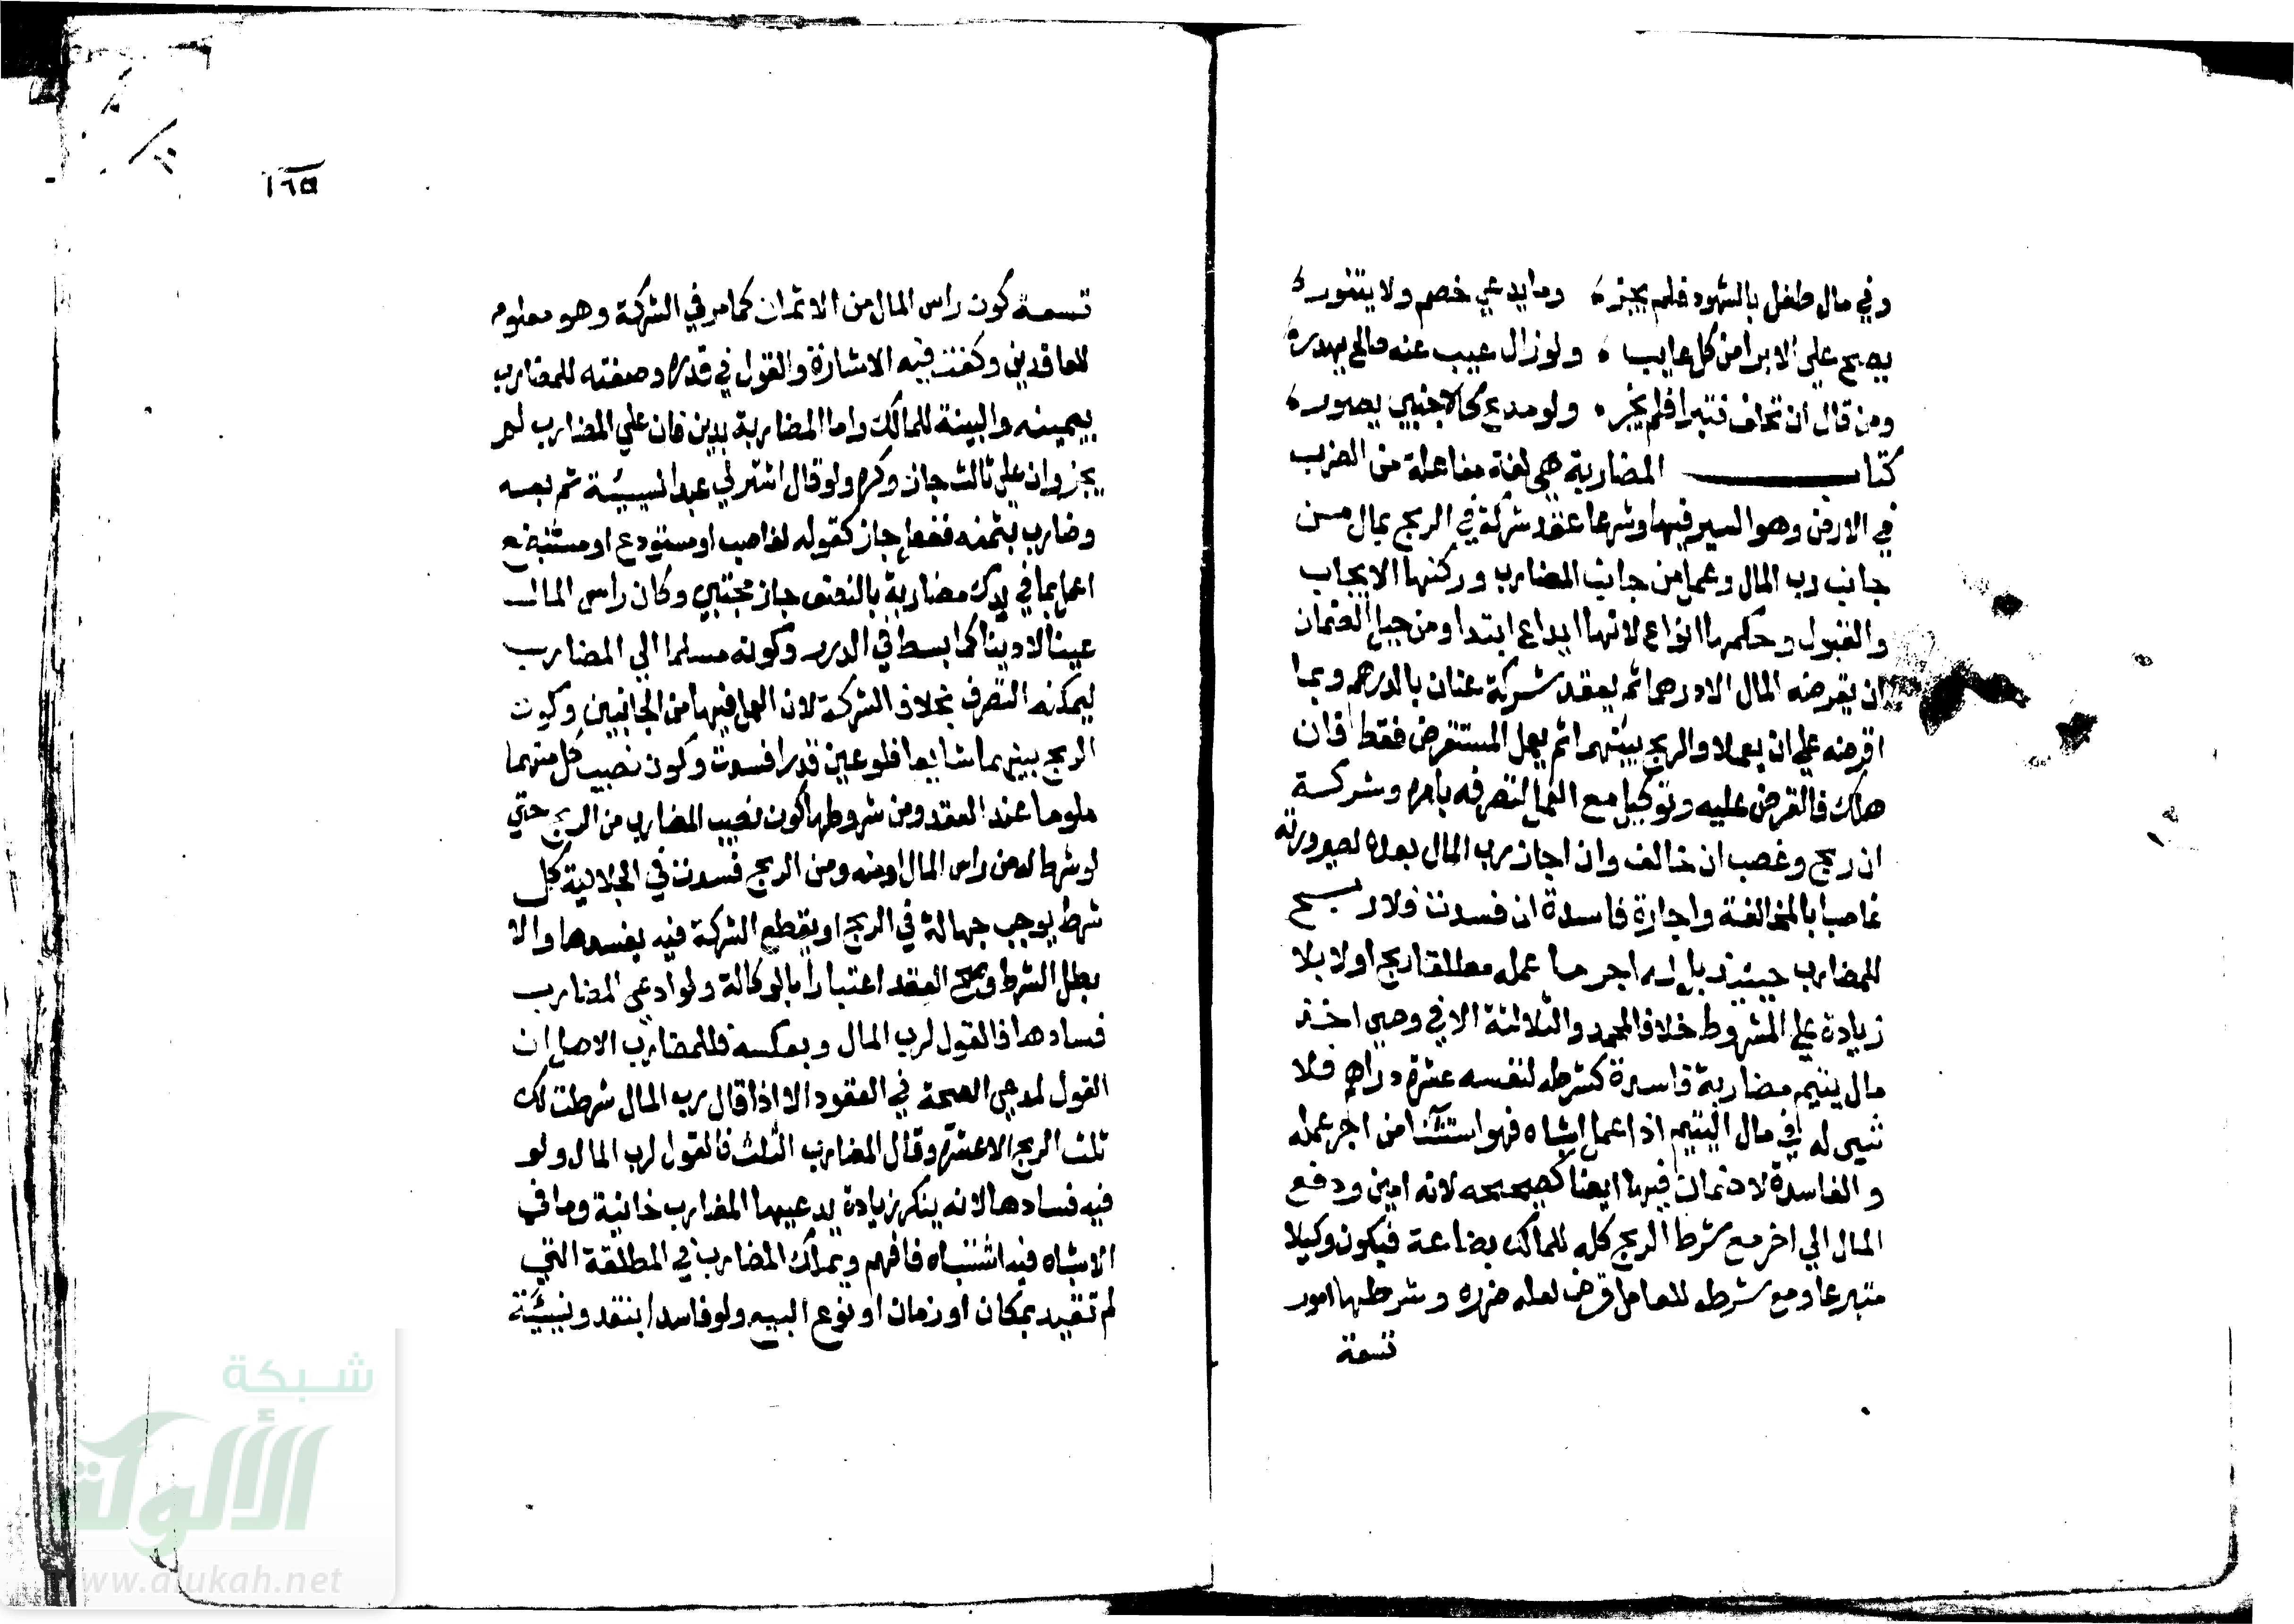 وفي مال طفل بالشهود فلم يجزه وما يدعي خصم ولا يتنوره
يصح علي الابرا من كل عايب ، ولو زال عيب عنه صالح يهدره
ومن قال ان تحلف فتبرا فلم يجز ، ولو مدع كالاجنبي يصوره
كتاب المضاربة هي لغة مفاعلة من الضرب
في الارض وهو السير فيها وشرعا عقد شركة في الربح بمال من
جانب رب المال وعمل من جانب المضارب وركنها الايجاب
والقبول وحكمها انواع لانها ايداع ابتدا ومن حيل الضمان
ان يقرضه المال الا درهما ثم يعقد شركة عنان بالدرهم وبما
اقرضه علي ان يعملا والربح بينهما ثم يعمل المستقرض فقط فان
هلك فالقرض عليه وتوكيل مع العمل لتصرفه بامره وشركة
ان ربح وغصب ان خالف وان اجاز رب المال بعده لصيرورته
غاصبا بالمخالفة واجارة فاسدة ان فسدت فلا ربح
للمضارب حينئذ بل له اجر ما عمله مطلقا ربح اولا بلا
زيادة علي المشروط خلافا لمحمد والثلاثة الا في وصي اخذ
مال يتيم مضاربة فاسدة كشرطه لنفسه عشرة دراهم فلا
شي له في مال اليتيم اذا عمل اشباه فهو استثنا من اجر عمله
والفاسدة لا ضمان فيها ايضا كصحيحه لانه امين ودفع
المال الي اخر مع شرط الربح كله للمالك بضاعة فيكون وكيلا
متبرعا ومع شرطه للعامل قرض لعله ضرره وشرطها امور
تسعة
١٦٥
تسعة كون راس المال من الاثمان كما مر في الشركة وهو معلوم
للعاقدين وكفت فيه الاشارة والقول في قدره وصفته للمضارب
بيمينه والبينة للمالك واما المضاربة بدين فان علي المضارب لم
يجز وان علي ثالث جاز وكره ولو قال اشتر لي عبدا نسيئة ثم بعه
وضارب بثمنه ففعل جاز كقوله لغاصب او مستودع او مستبضع
اعمل بما في يدك مضاربة بالنصف جاز مجتبي وكان راس المال
عينا لا دينا كما بسط في الدرر وكونه مسلما الي المضارب
ليمكنه التصرف بخلاف الشركة لان العمل فيها من الجانبين وكون
الربح بينهما شايعا فلو عين قدرا فسدت وكون نصيب كل منهما
ملوما عند العقد ومن شروطها كون نصيب المضارب من الربح حتي
لو شرط له من راس المال او منه ومن الربح فسدت في الجلالية كل
شرط يوجب جهالة في الربح او يقطع الشركة فيه يفسدها والا
بطل الشرط وصح العقد اعتبارا بالوكالة ولو ادعي المضارب
فسادها فالقول لرب المال وبعكسه فللمضارب الاصل ان
القول لمدعي الصحة في العقود الا اذا قال رب المال شرطت لك
ثلث الربح الا عشرة وقال المضارب الثلث فالقول لرب المال ولو
فيه فسادها لانه ينكر زيادة يدعيها المضارب خانية وما في
الاشباه فيه اشتباه فافهم ويملك المضارب في المطلقة التي
لم تقيد بمكان او زمان او نوع البيع ولو فاسدا بنقد ونسيئة
شبكة
الألوكة
www.alukah.net